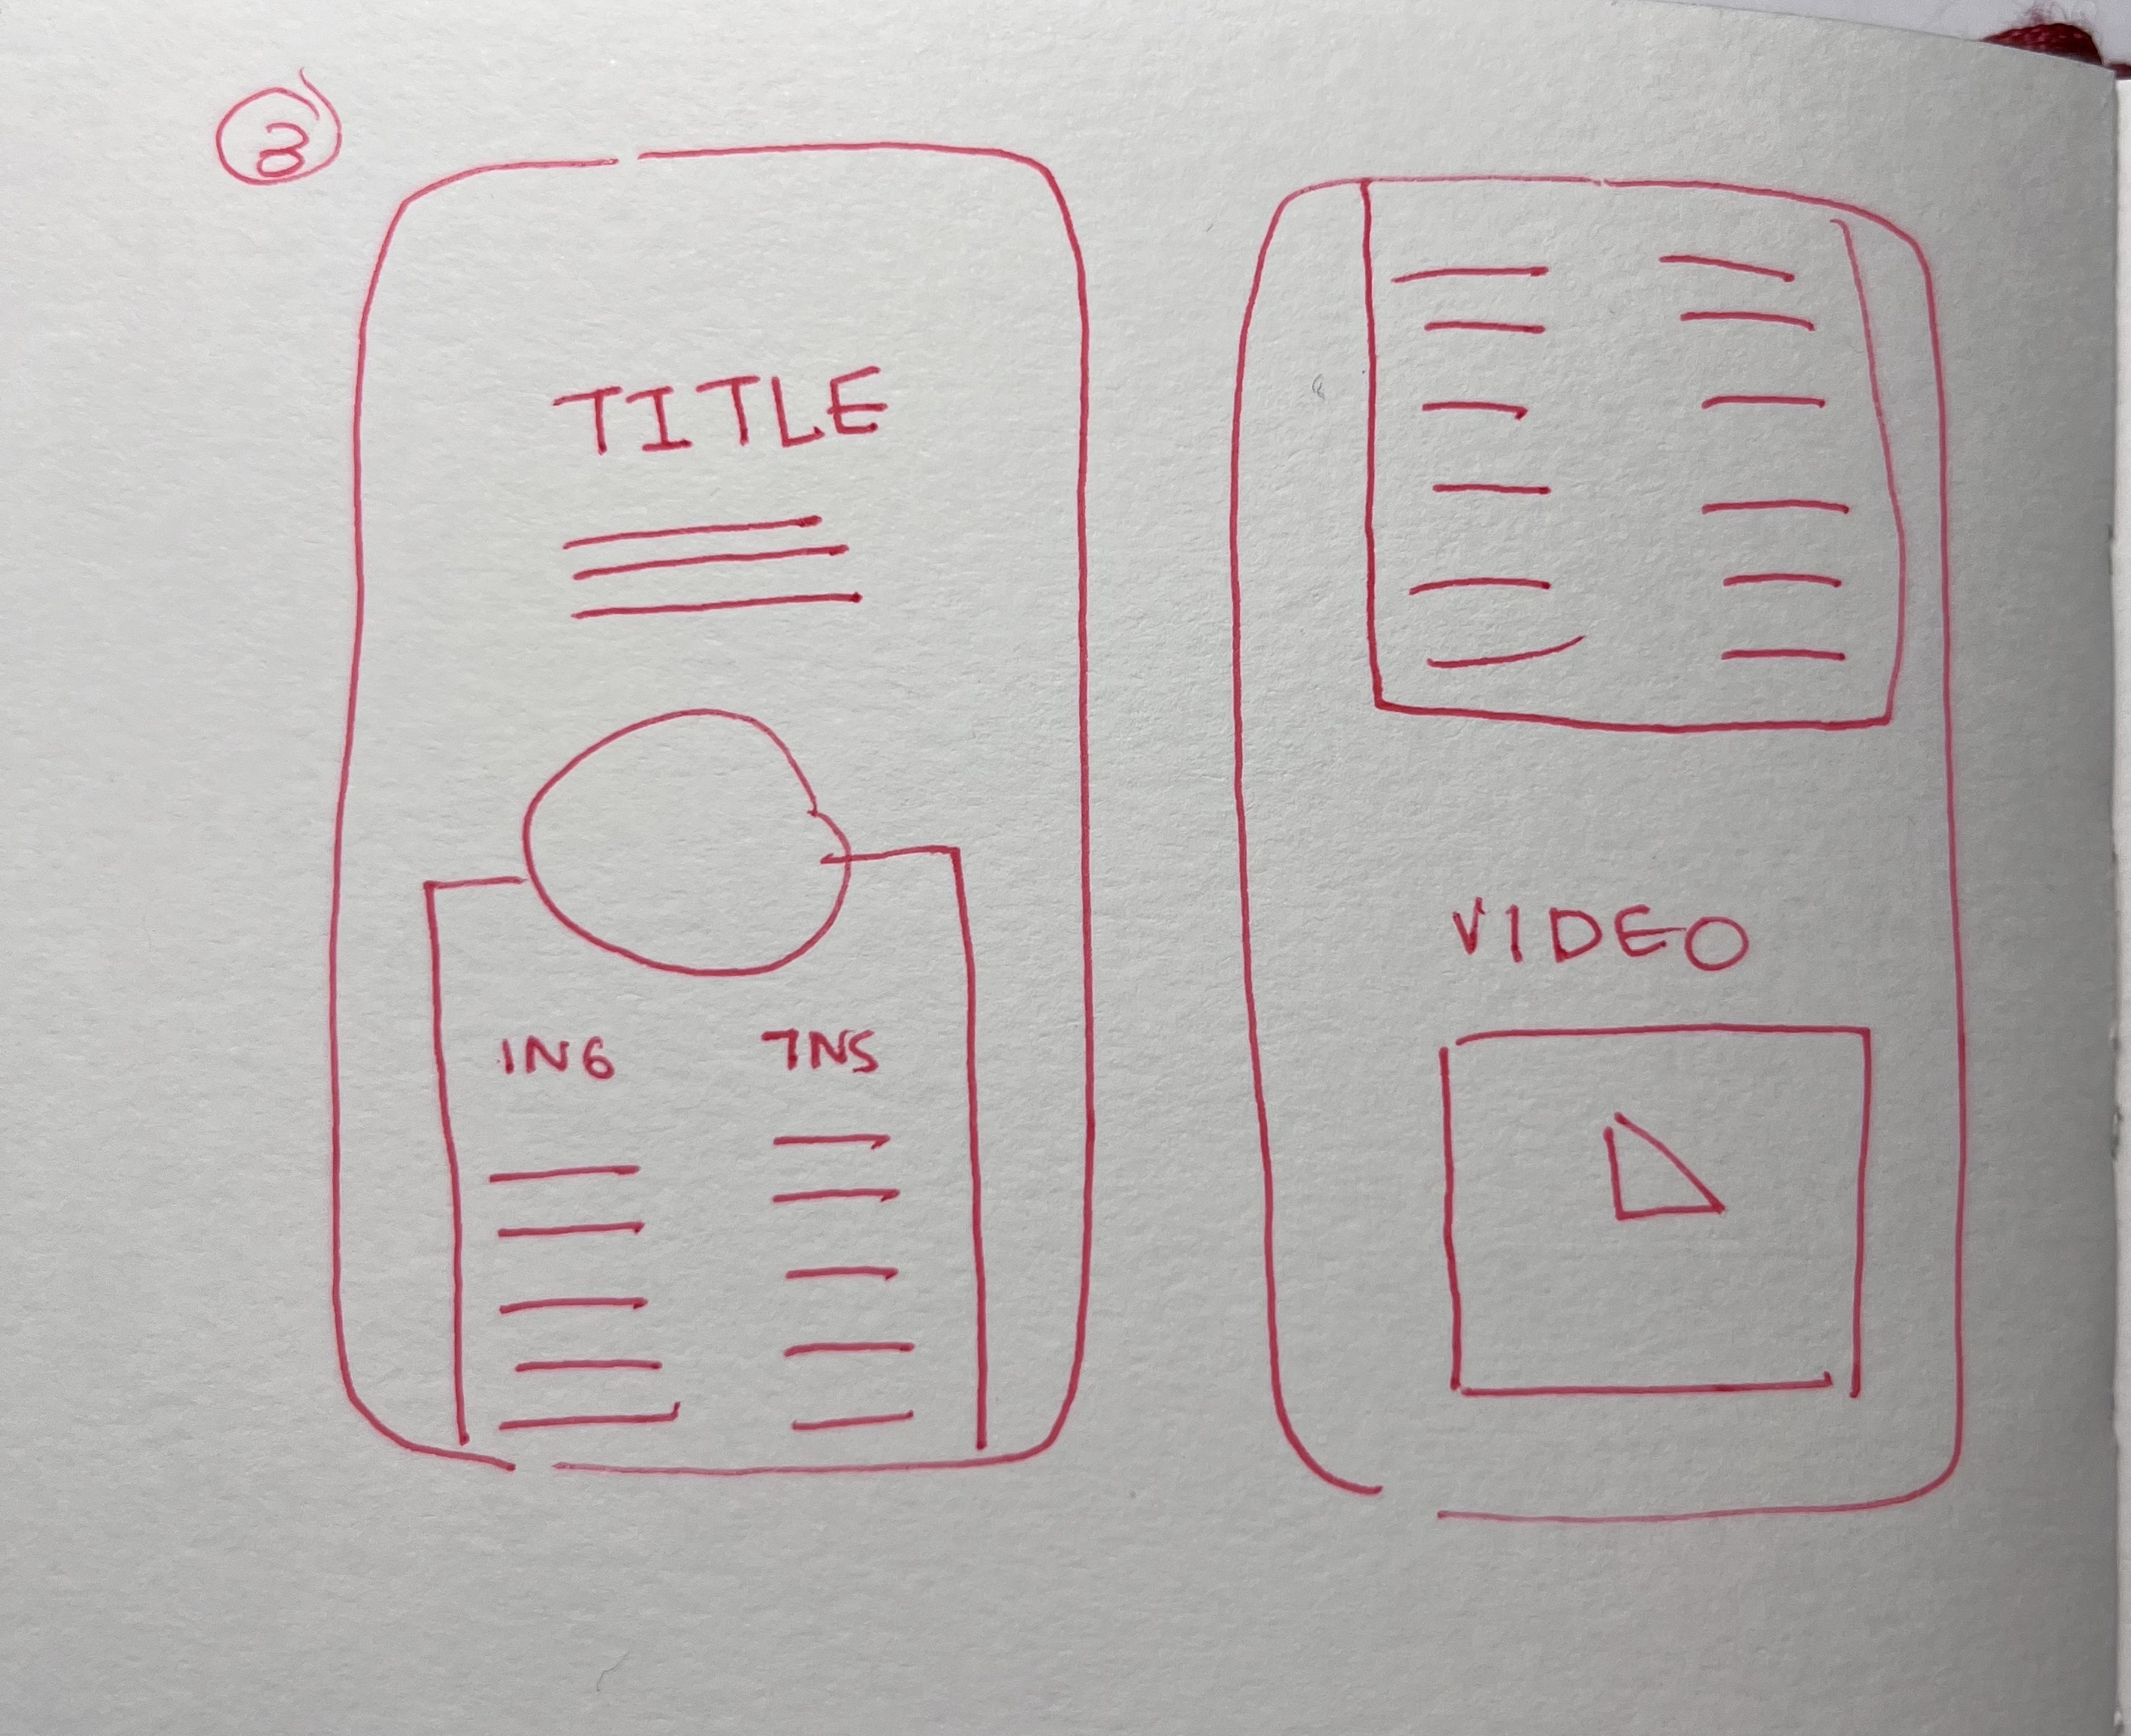 3
TITLE
ING INS
VIDEO